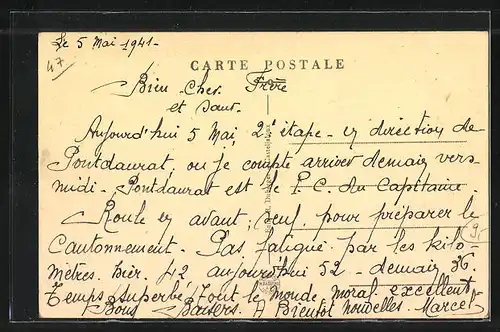 Le 5 Mai 1941.
47
CARTE POSTALE
Bien Cher Frère
et Sœur.
Aujourd'hui 5 Mai 2e étape - en direction de
Pontdaurat, ou je compte arriver demain vers
midi - Pontdaurat est le P.C. du Capitaine.
Roule en avant, seul, pour préparer le
Cantonnement. Pas fatigué par les kilo-
mètres. hier 42 aujourd'hui 52 - demain 36.
Temps superbe, tout le monde, moral excellent
Bons Baisers. A Bientôt nouvelles. Marcel